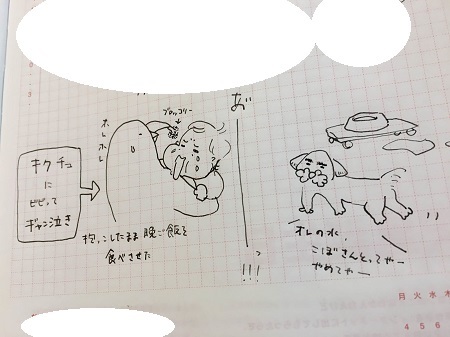 キクチュ
に
ビビって
ギャン泣き
ホレホレ
ブロッコリー
抱っこしたまま晩ご飯を
食べさせた
あ゛ーっ!!!
オレの水、
こぼさんとってやー
やめてやー
月 火 水 木
4 5 6